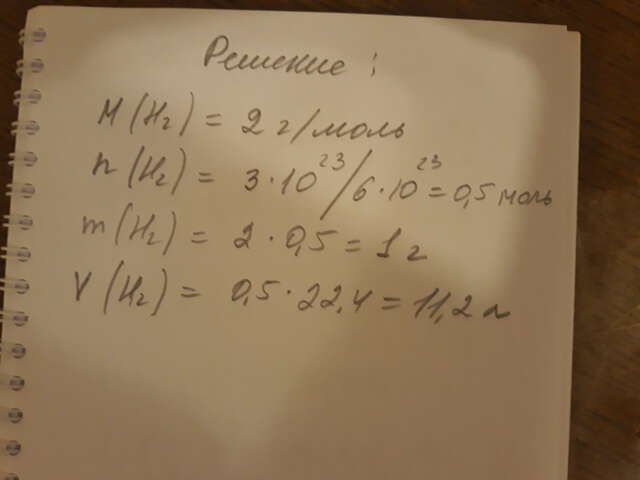 Решение:
M(H₂) = 2 г/моль
n(H₂) = 3·10²³/6·10²³ = 0,5 моль
m(H₂) = 2·0,5 = 1 г
V(H₂) = 0,5·22,4 = 11,2 л